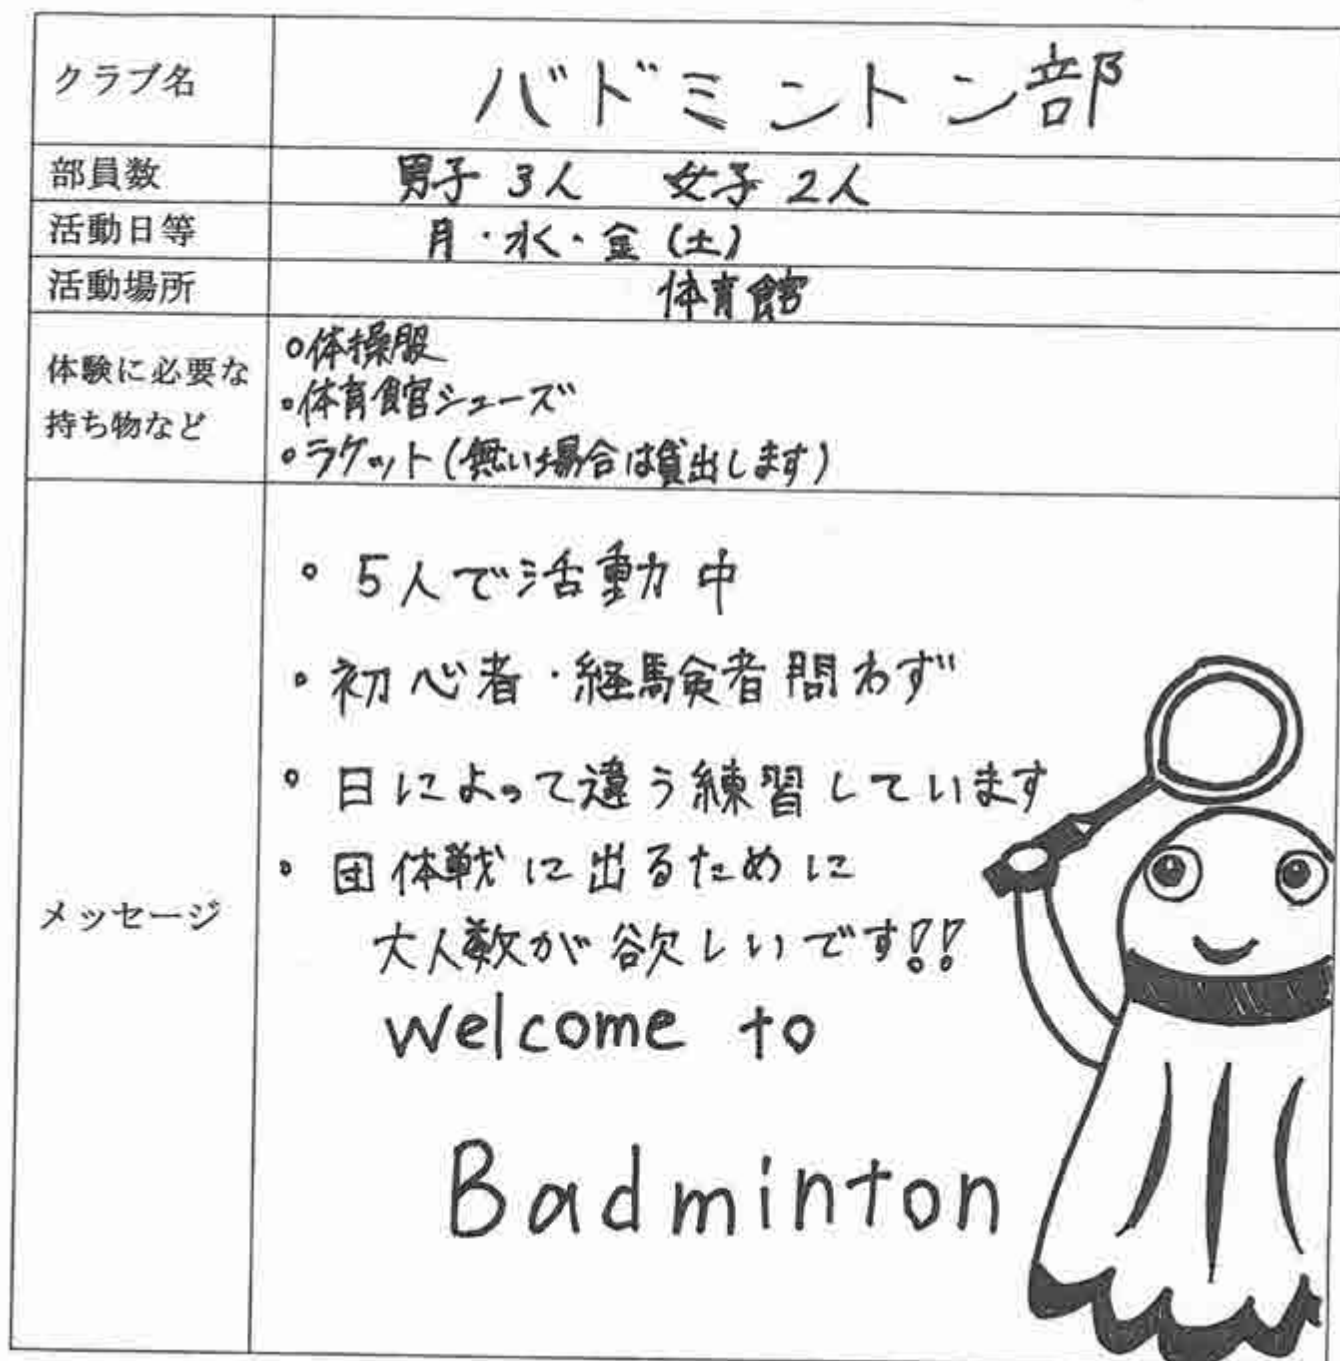 クラブ名
バドミントン部
部員数
男子 3人 女子 2人
活動日等
月・水・金(土)
活動場所
体育館
体験に必要な
持ち物など
○体操服
○体育館シューズ
○ラケット(無い場合は貸出します)
メッセージ
○ 5人で活動中
○ 初心者・経験者問わず
○ 日によって違う練習しています
○ 団体戦に出るために
大人数が欲しいです!!
welcome to
Badminton